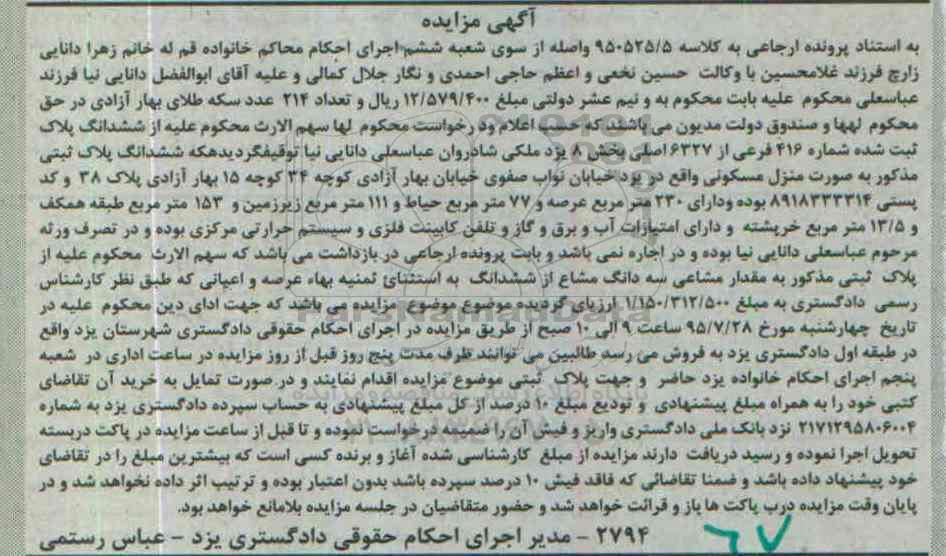 آگهی مزایده
به استناد پرونده ارجاعی به کلاسه ۹۵۰۵۲۵/۵ واصله از سوی شعبه ششم اجرای احکام محاکم خانواده قم له خانم زهرا دانایی
زارچ فرزند غلامحسین با وکالت حسین نخعی و اعظم حاجی احمدی و نگار جلال کمالی و علیه آقای ابوالفضل دانایی نیا فرزند
عباسعلی محکوم علیه بابت محکوم به و نیم عشر دولتی مبلغ ۱۲/۵۷۹/۴۰۰ ریال و تعداد ۲۱۴ عدد سکه طلای بهار آزادی در حق
محکوم لهها و صندوق دولت مدیون می باشند که حسب اعلام ود رخواست محکوم لها سهم الارث محکوم علیه از ششدانگ پلاک
ثبت شده شماره ۴۱۶ فرعی از ۶۳۲۷ اصلی بخش ۸ یزد ملکی شادروان عباسعلی دانایی نیا توقیفگردیدهکه ششدانگ پلاک ثبتی
مذکور به صورت منزل مسکونی واقع در یزد خیابان نواب صفوی خیابان بهار آزادی کوچه ۳۴ کوچه ۱۵ بهار آزادی پلاک ۳۸ و کد
پستی ۸۹۱۸۳۳۳۳۱۴ بوده ودارای ۲۳۰ متر مربع عرصه و ۷۷ متر مربع حیاط و ۱۱۱ متر مربع زیرزمین و ۱۵۳ متر مربع طبقه همکف
و ۱۳/۵ متر مربع خرپشته و دارای امتیازات آب و برق و گاز و تلفن کابینت فلزی و سیستم حرارتی مرکزی بوده و در تصرف ورثه
مرحوم عباسعلی دانایی نیا بوده و در اجاره نمی باشد و بابت پرونده ارجاعی در بازداشت می باشد که سهم الارث محکوم علیه از
پلاک ثبتی مذکور به مقدار مشاعی سه دانگ مشاع از ششدانگ به استثنائ ثمنیه بهاء عرصه و اعیانی که طبق نظر کارشناس
رسمی دادگستری به مبلغ ۱/۱۵۰/۳۱۲/۵۰۰ ارزیای گردیده موضوع موضوع مزایده می باشد که جهت ادای دین محکوم علیه در
تاریخ چهارشنبه مورخ ۹۵/۷/۲۸ ساعت ۹ الی ۱۰ صبح از طریق مزایده در اجرای احکام حقوقی دادگستری شهرستان یزد واقع
در طبقه اول دادگستری یزد به فروش می رسد طالبین می توانند ظرف مدت پنج روز قبل از روز مزایده در ساعت اداری در شعبه
پنجم اجرای احکام خانواده یزد حاضر و جهت پلاک ثبتی موضوع مزایده اقدام نمایند و در صورت تمایل به خرید آن تقاضای
کتبی خود را به همراه مبلغ پیشنهادی و تودیع مبلغ ۱۰ درصد از کل مبلغ پیشنهادی به حساب سپرده دادگستری یزد به شماره
۲۱۷۱۲۹۵۸۰۶۰۰۴ نزد بانک ملی دادگستری واریز و فیش آن را ضمیمه درخواست نموده و تا قبل از ساعت مزایده در پاکت دربسته
تحویل اجرا نموده و رسید دریافت دارند مزایده از مبلغ کارشناسی شده آغاز و برنده کسی است که بیشترین مبلغ را در تقاضای
خود پیشنهاد داده باشد و ضمنا تقاضائی که فاقد فیش ۱۰ درصد سپرده باشد بدون اعتبار بوده و ترتیب اثر داده نخواهد شد و در
پایان وقت مزایده درب پاکت ها باز و قرائت خواهد شد و حضور متقاضیان در جلسه مزایده بلامانع خواهد بود.
۲۷۹۴ - مدیر اجرای احکام حقوقی دادگستری یزد - عباس رستمی
۶۷
ParsNamadData